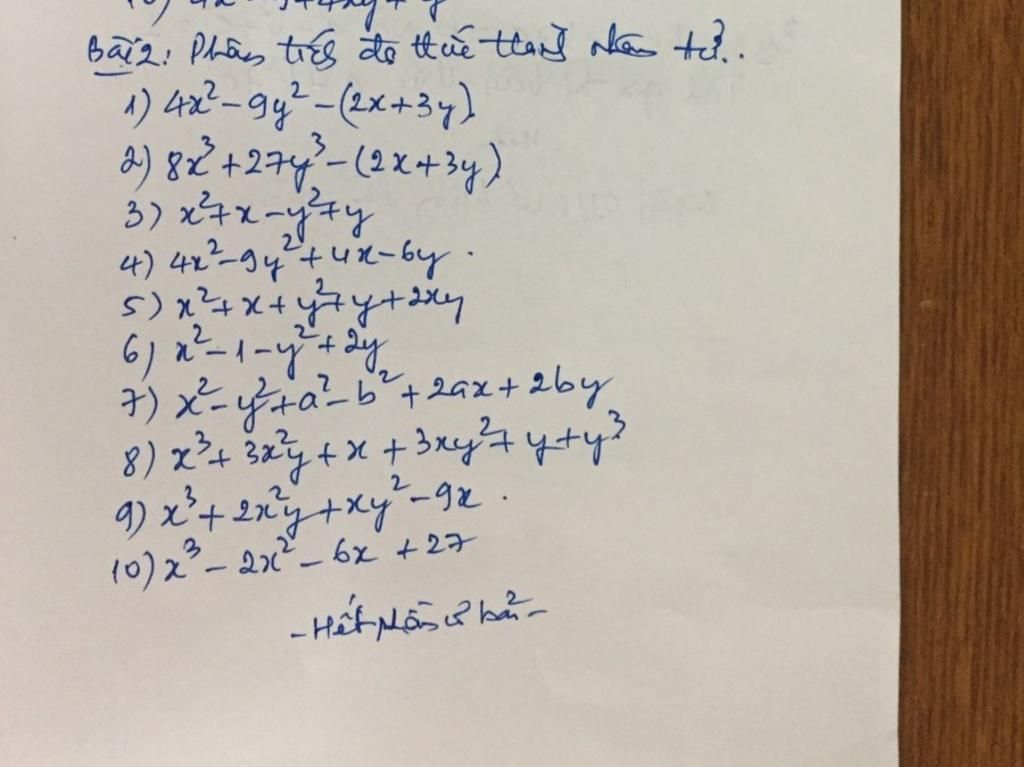 Bài 2: Phân tích đa thức thành nhân tử.
1) 4x² - 9y² - (2x + 3y)
2) 8x³ + 27y³ - (2x + 3y)
3) x² + x - y² + y
4) 4x² - 9y² + 4x - 6y.
5) x² + x + y² + y + 2xy
6) x² - 1 - y² + 2y
7) x² - y² + a² - b² + 2ax + 2by
8) x³ + 3x²y + x + 3xy² + y + y³
9) x³ + 2x²y + xy² - 9x.
10) x³ - 2x² - 6x + 27
- Hết phần cơ bản -